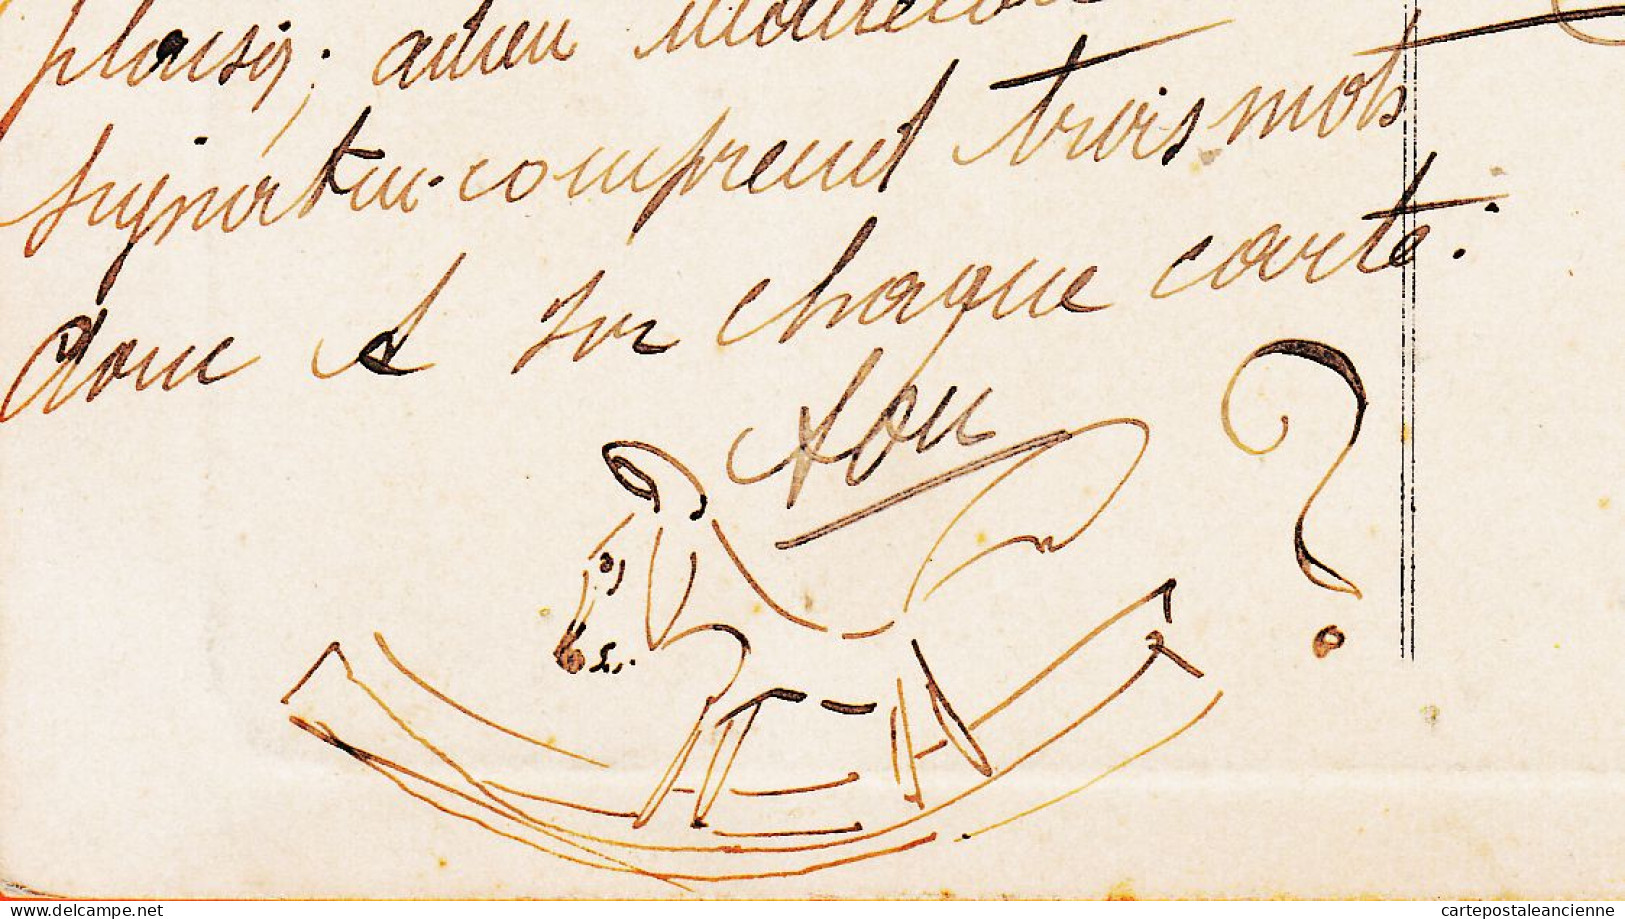 plaisir; adieu
signature comprend trois mots
donc 1 sur chaque carte.
ton
?
delcampe.net
cartepostaleancienne